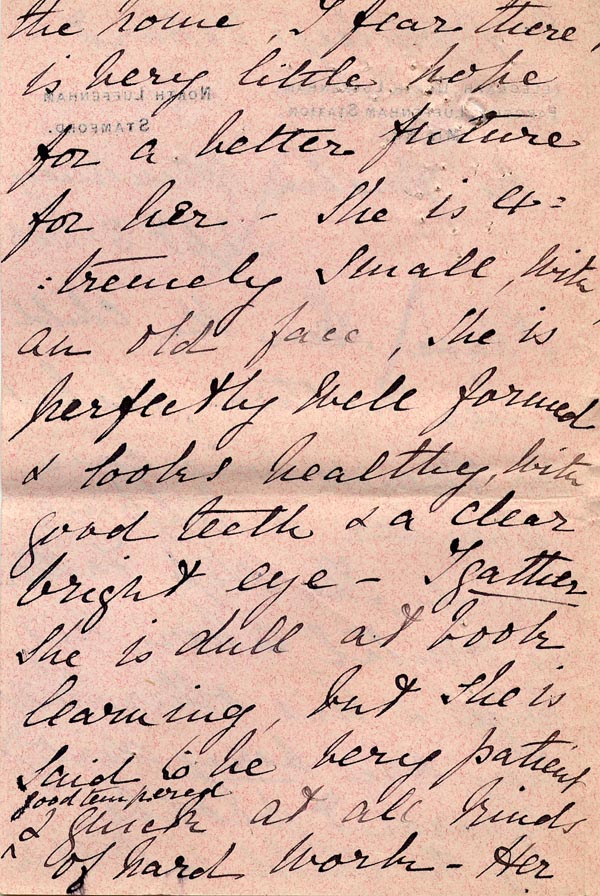 the home, I fear there,
is very little hope
for a better future
for her - She is ex=
:tremely small, with
an old face, She is
perfectly well formed
& looks healthy, with
good teeth & a clear
bright eye - I gather
She is dull at book
learning, but she is
said to be very patient
good tempered
& quick at all kinds
of hard work - Her
NORTH LUFFENHAM
STAMFORD.
LUFFENHAM STATION